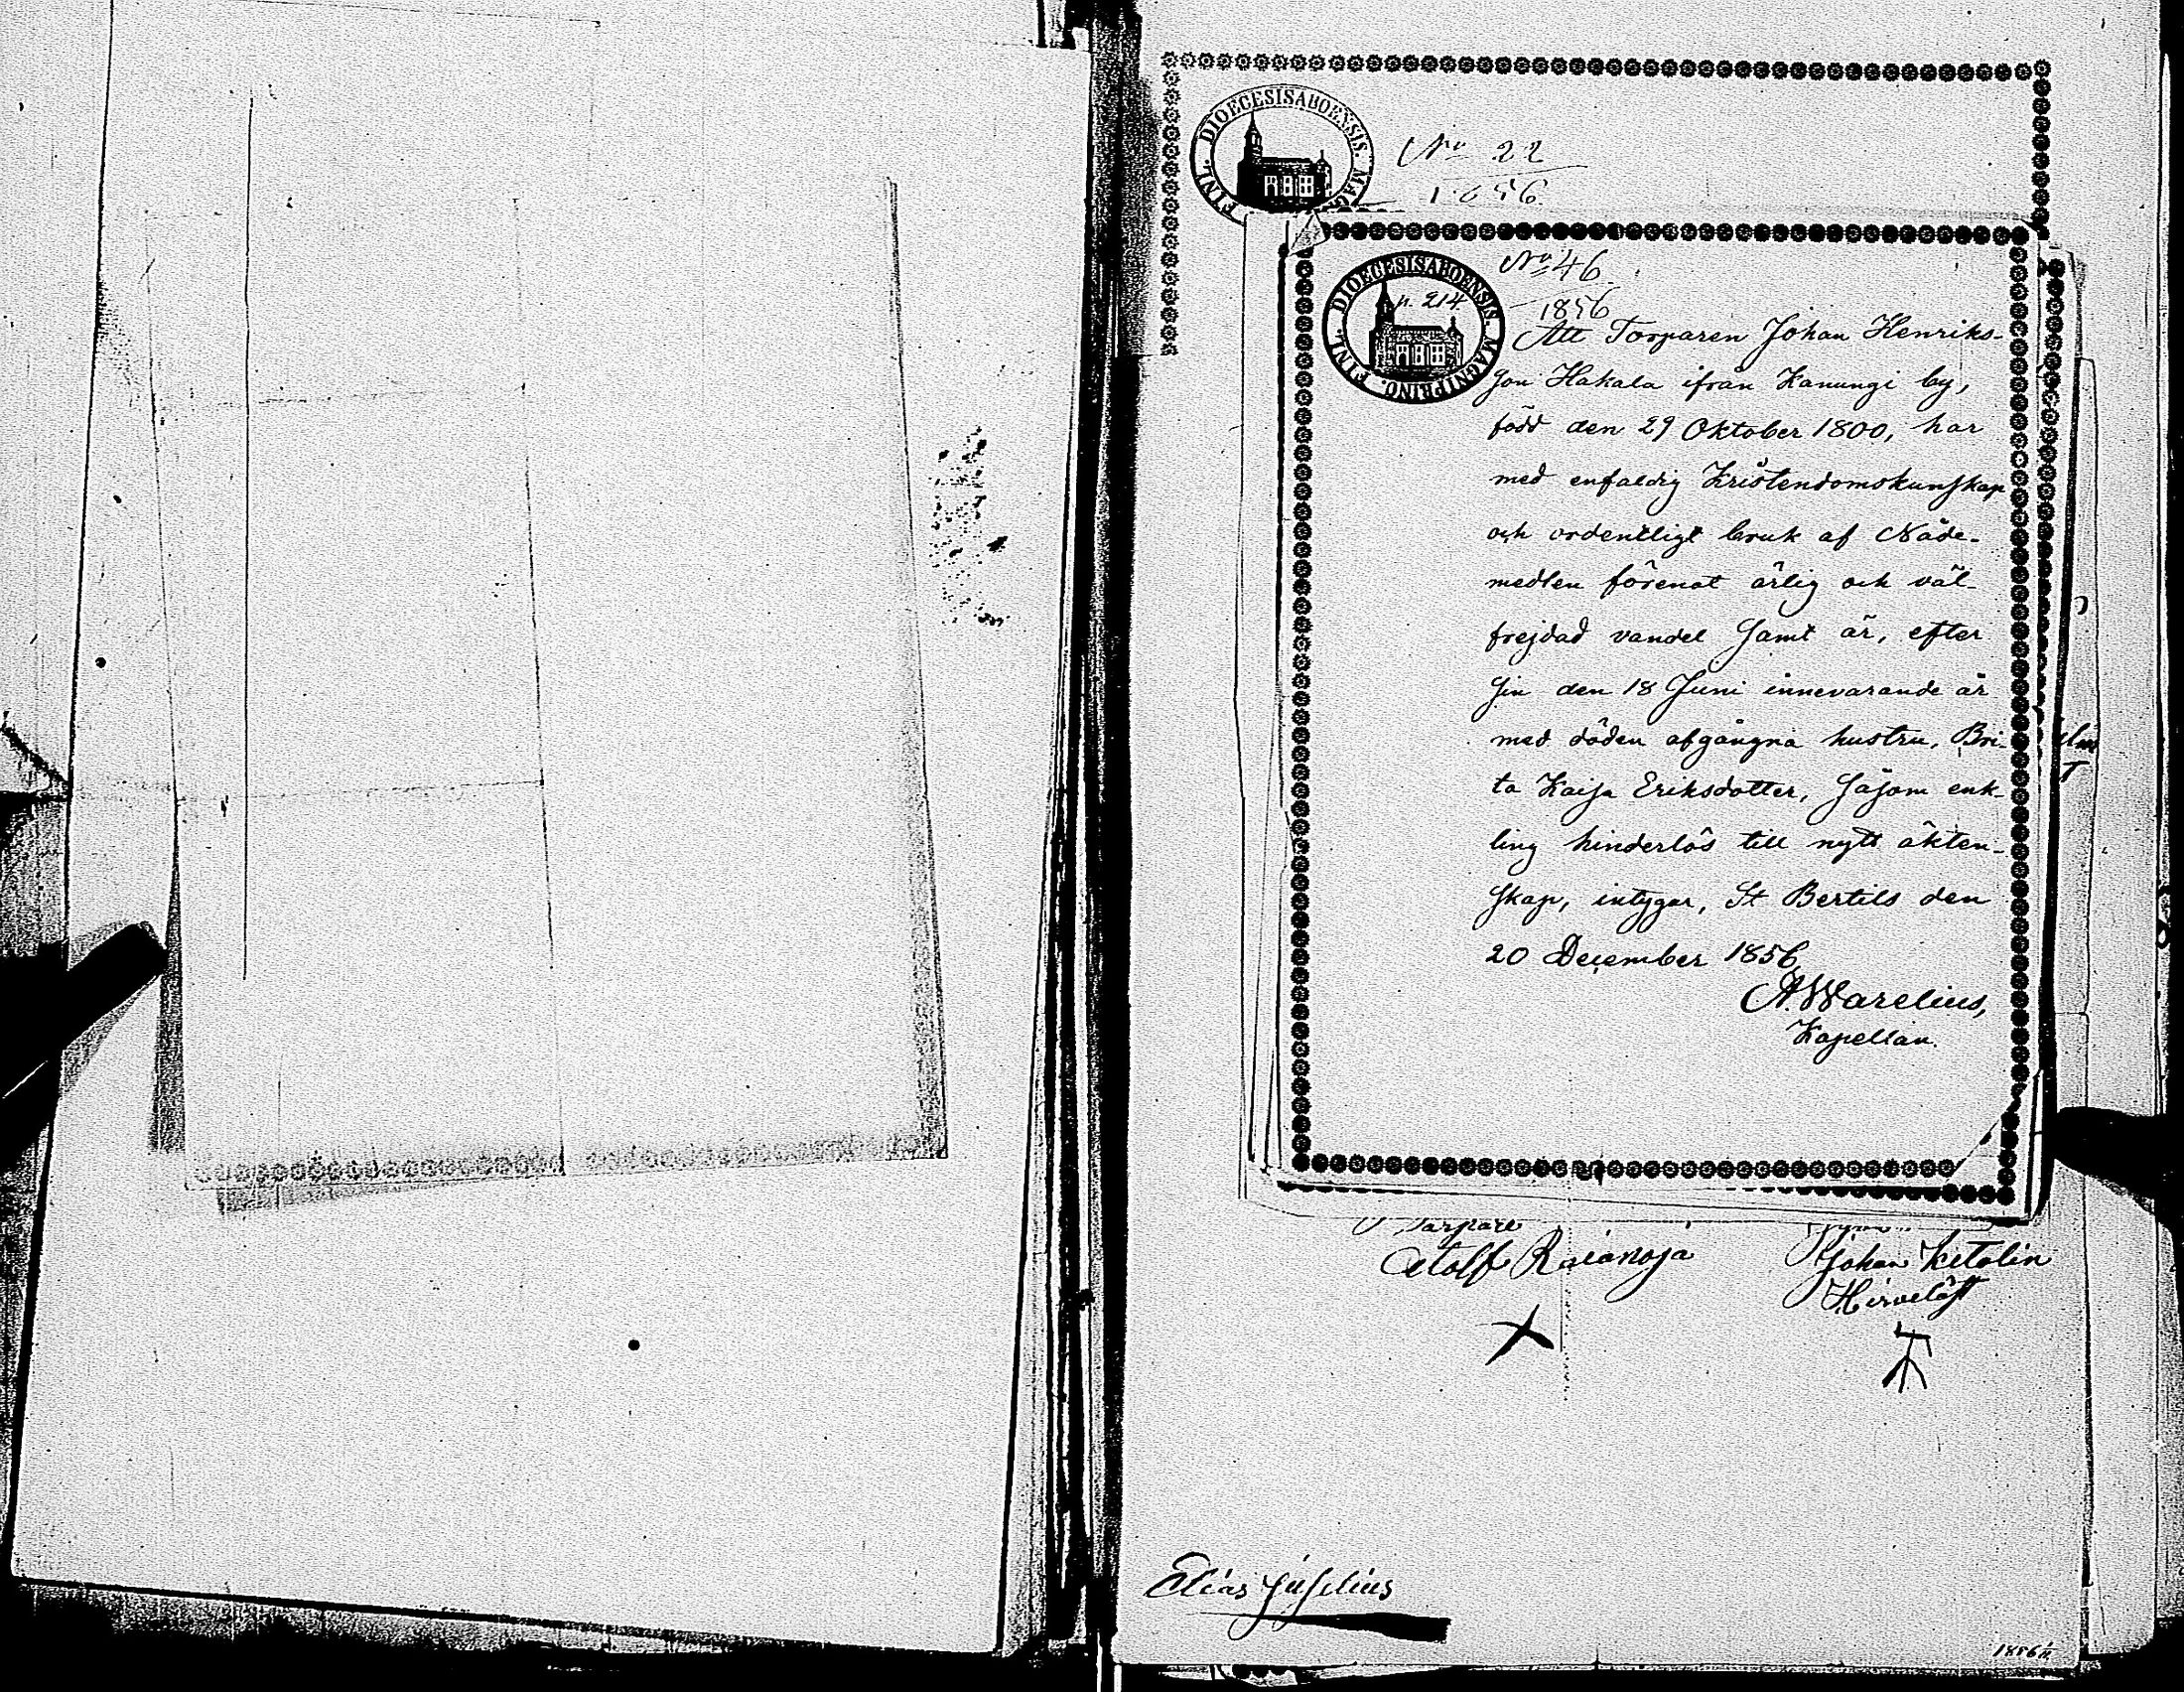 FINL. DIOECESISABOENSIS. MAG
No 22
1856
FINL. DIOECESISABOENSIS. MAGNIPRINC.
p. 214.
No 46
1856
Att Torparen Johan Henriks-
son Hakala ifrån Kanungi by,
född den 29 Oktober 1800, har
med enfaldig Kristendomskunskap
och ordentligt bruk af Nåde-
medlen förenat ärlig och väl-
frejdad vandel samt är, efter
sin den 18 Juni innevarande år
med döden afgångna hustru, Bri-
ta Kaisa Eriksdotter, såsom enk-
ling hinderlös till nytt äkten-
skap, intygar, St Bertils den
20 December 1856
A. Warelius,
Kapellan.
Torpare
Adolf Raianoja
Johan Ketolin
Elias Juselius
1856